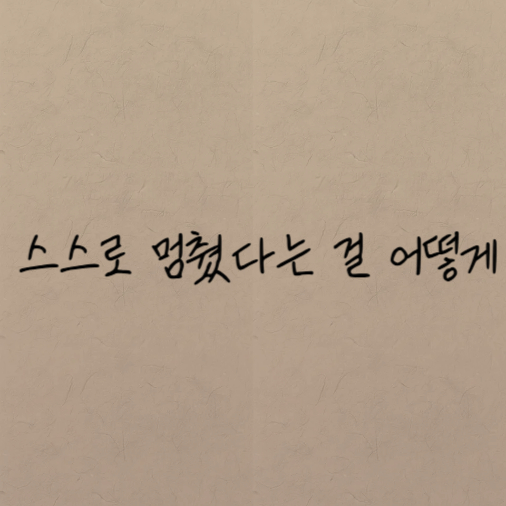 스스로 멈췄다는 걸 어떻게